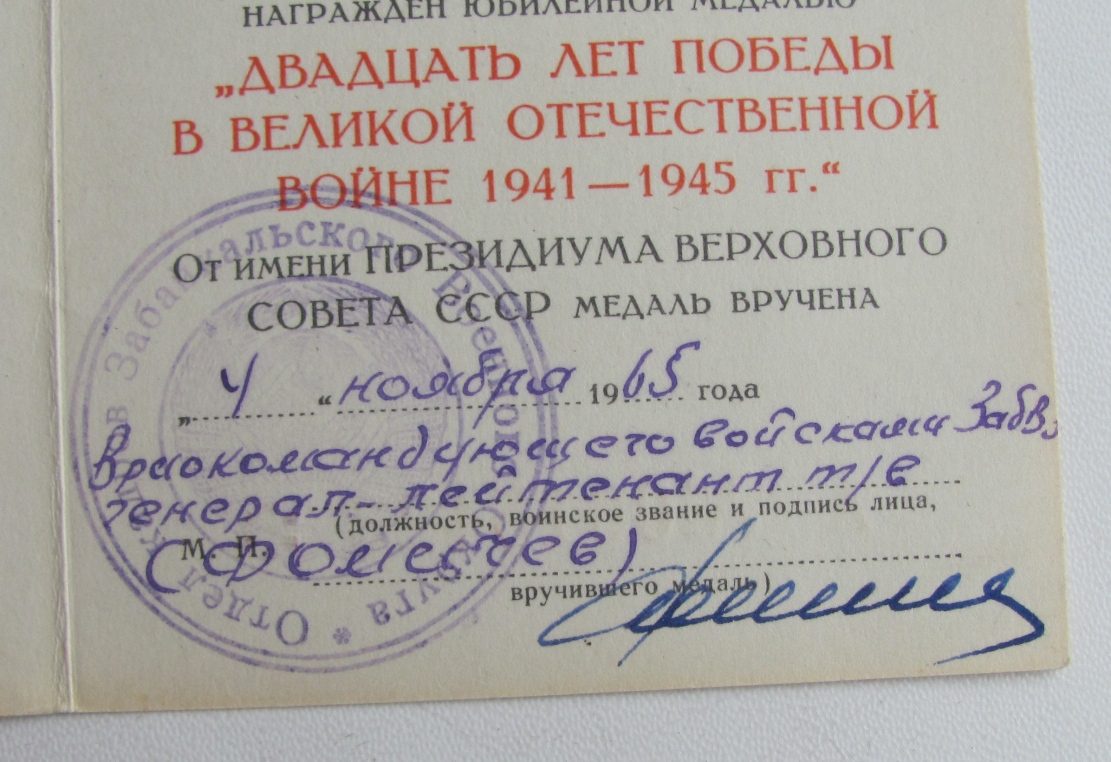 НАГРАЖДЕН ЮБИЛЕЙНОЙ МЕДАЛЬЮ
„ДВАДЦАТЬ ЛЕТ ПОБЕДЫ
В ВЕЛИКОЙ ОТЕЧЕСТВЕННОЙ
ВОЙНЕ 1941—1945 гг.“
От имени ПРЕЗИДИУМА ВЕРХОВНОГО
СОВЕТА СССР МЕДАЛЬ ВРУЧЕНА
„4“ ноября 1965 года
Вриокомандующего войсками ЗабВо
генерал-лейтенант т/в
(должность, воинское звание и подпись лица,
М. П. (Фомичев)
вручившего медаль)
Отдел кадров Забайкальского Военного Округа *